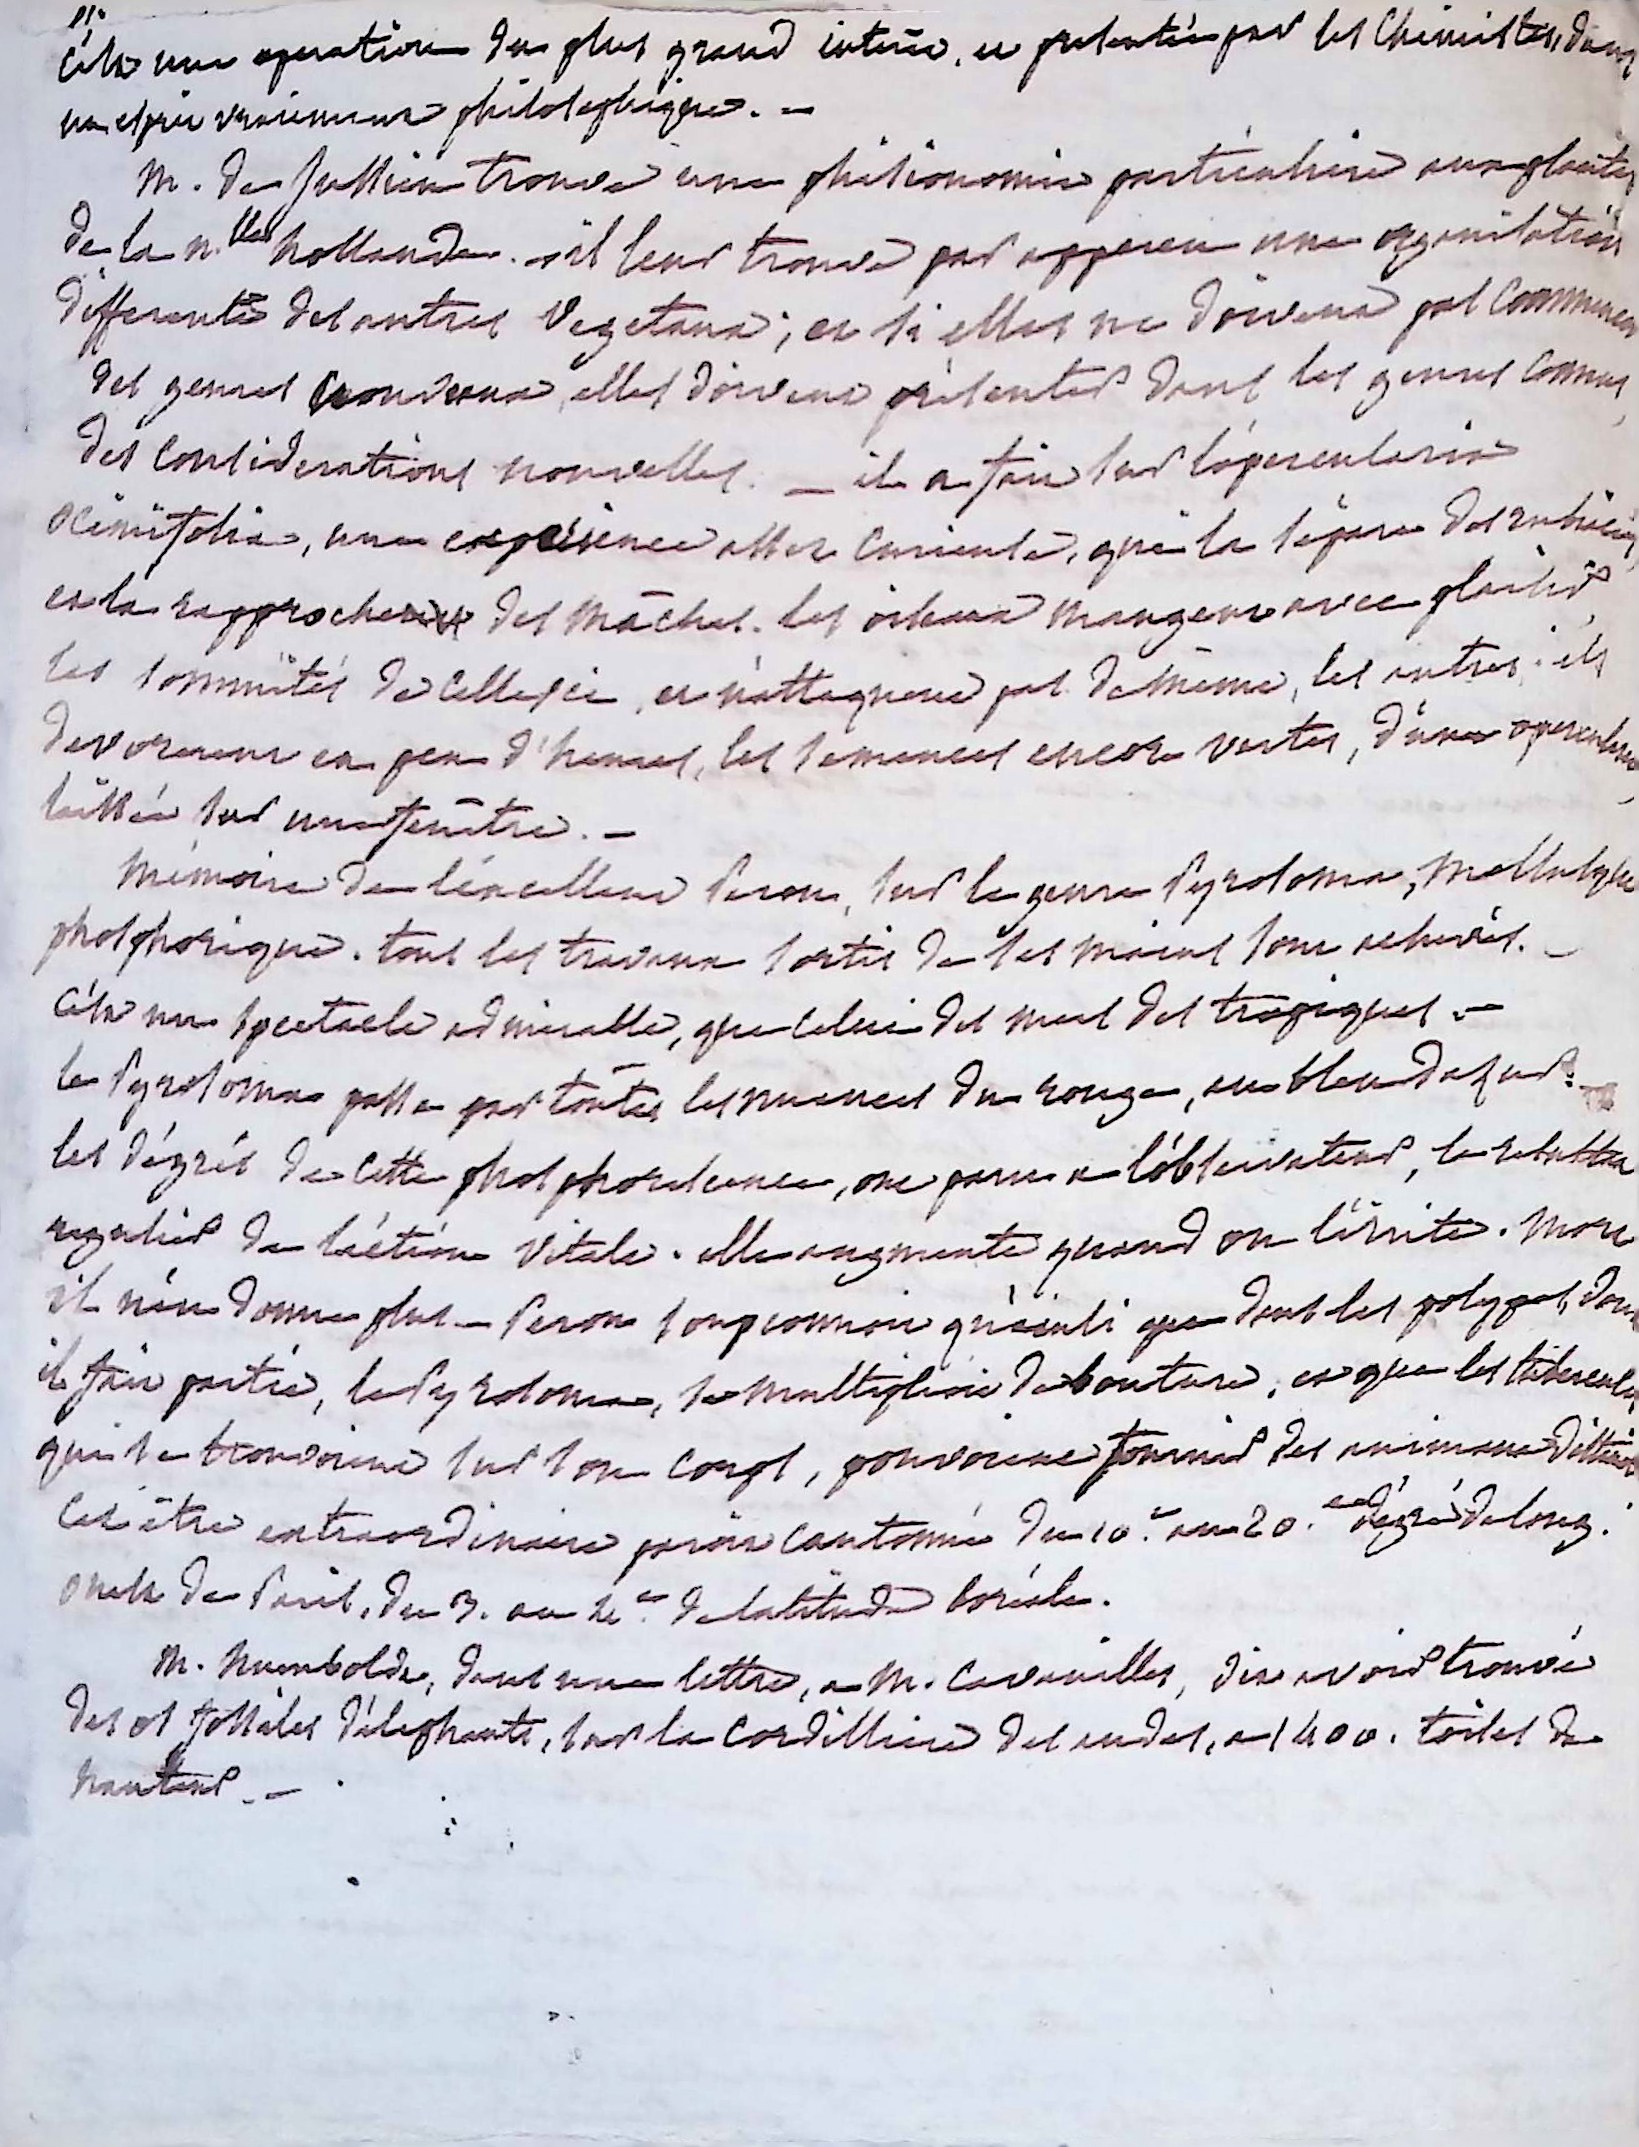 c'est une operation du plus grand interêt, et presentée par les Chimistes, dans
un esprit vraiement philosophique. –
M. de Jussieu trouve une phisionomie particuliere aux plantes
de la n.lle hollande. il leur trouve par apperceu une organisation
differente des autres vegetaux ; et si elles ne doivent pas
des genres nouveaux, elles doivent présenter dans les genres connus,
des considerations nouvelles. – il a fait sur l'opercularia
ocimifolia, une expérience assez curieuse, qui la sépare des rubiacées,
et la rapproche des mâches. les oiseaux mangent avec plaisir
les sommités de celles ci, et n'attaquent pas de même, les autres. ils
devorerent en peu d'heures, les semences encore vertes, d'une
laissée sur une fenêtre. –
Mémoire de l'éxcellent Peron, sur le genre Pyrosoma, mollusque
phosphorique. tous les travaux sortis de ses mains sont achevés. –
c'est un spectacle admirable, que celui des mers des tropiques. –
le Pyrosoma passe par toutes les nuances du rouge, au bleu d'azur.
les dégrés de cette phosphorescence, ont paru a l'observateur, le resultat
regulier de l'action vitale. elle augmente quand on l'irrite. Mort
il n'en donne plus – Peron soupçonnoit qu'ainsi que dans les polypes, dont
il fait partie, le Pyrosoma, se multiplioit de bouture, et que les tubercules
qui se trouvoient sur son corps, pouvoient fournir des animaux distincts
cet être extraordinaire paroit cantonné du 10.e au 20.e dégré de long.
ouest de Paris, du 3. au 4.e de latitude boréale.
M. humboldt, dans une lettre, a M. Cavanilles, dit avoir trouvé
des os fossiles d'élephants, sur la Cordilliere des andes, a 1400. toises de
hauteur. –